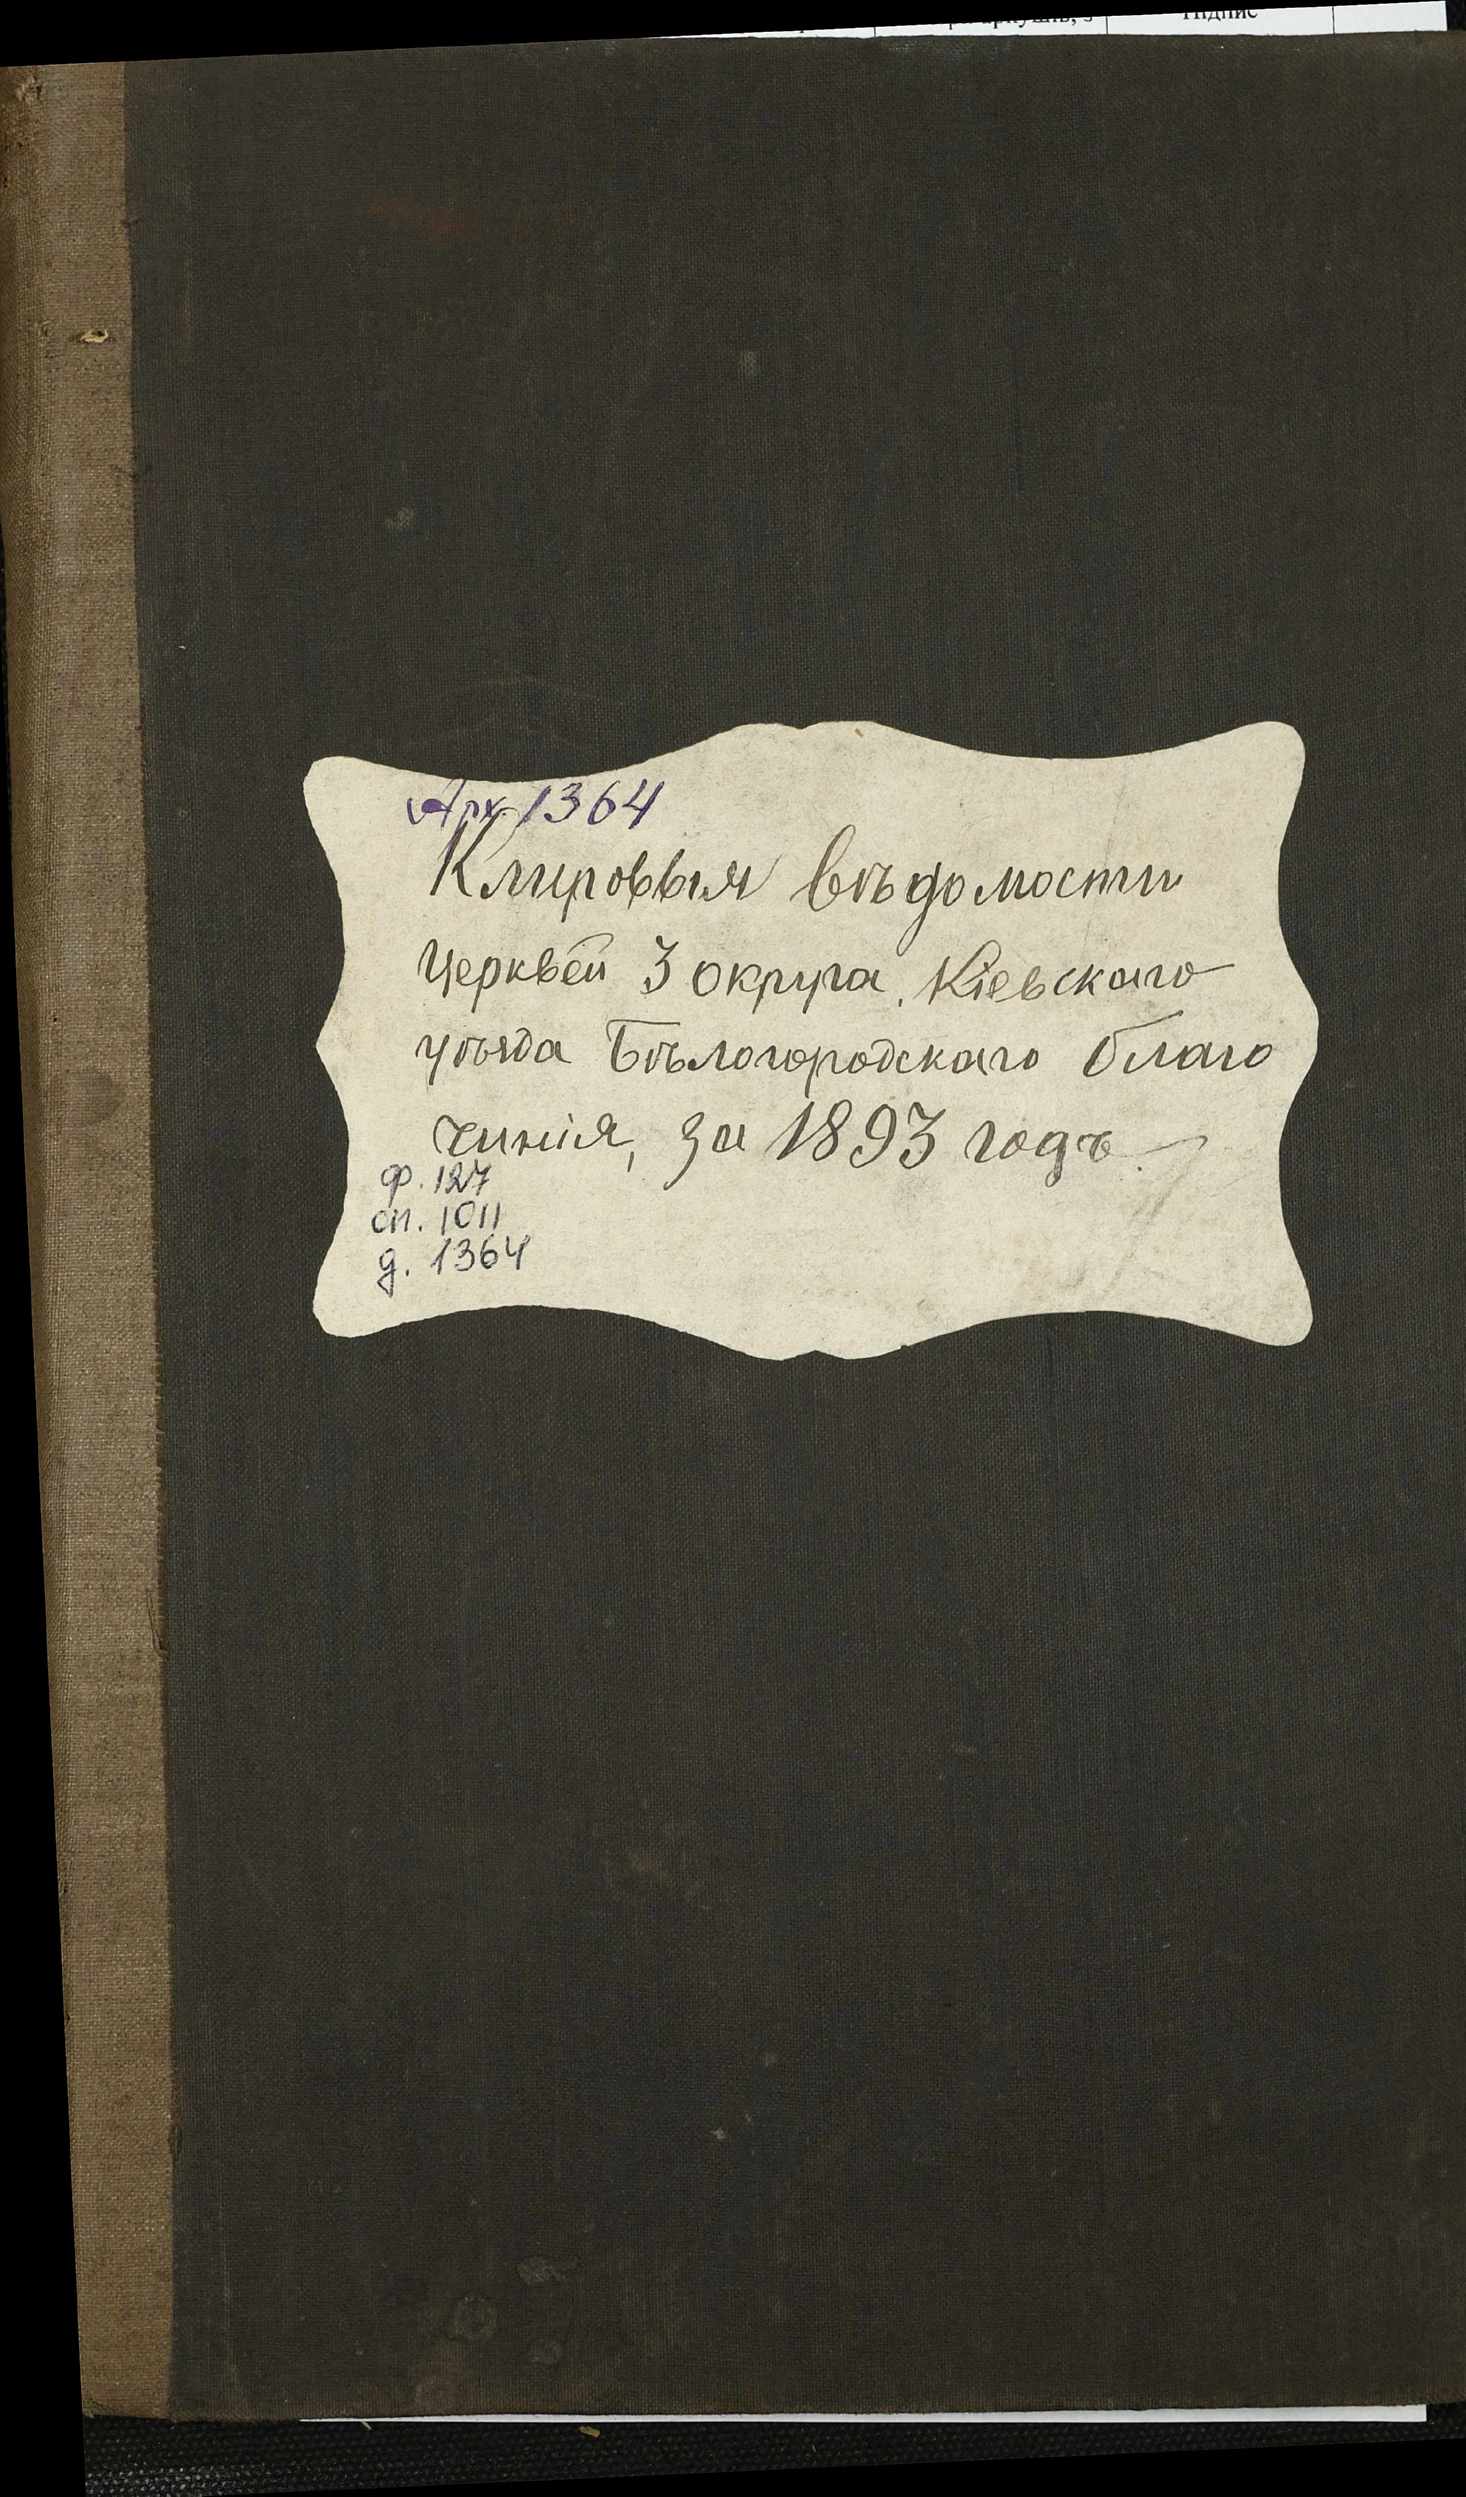 Підпис
Арх. 1364
Клировыя вѣдомости
Церквей 3 округа Кіевскаго
уѣзда Бѣлогородскаго благо
чинія, за 1893 годъ.
ф. 127
оп. 1011
д. 1364